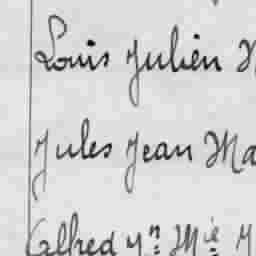 Louis Julien
Jules Jean Ma
Alfred Jn Mie J